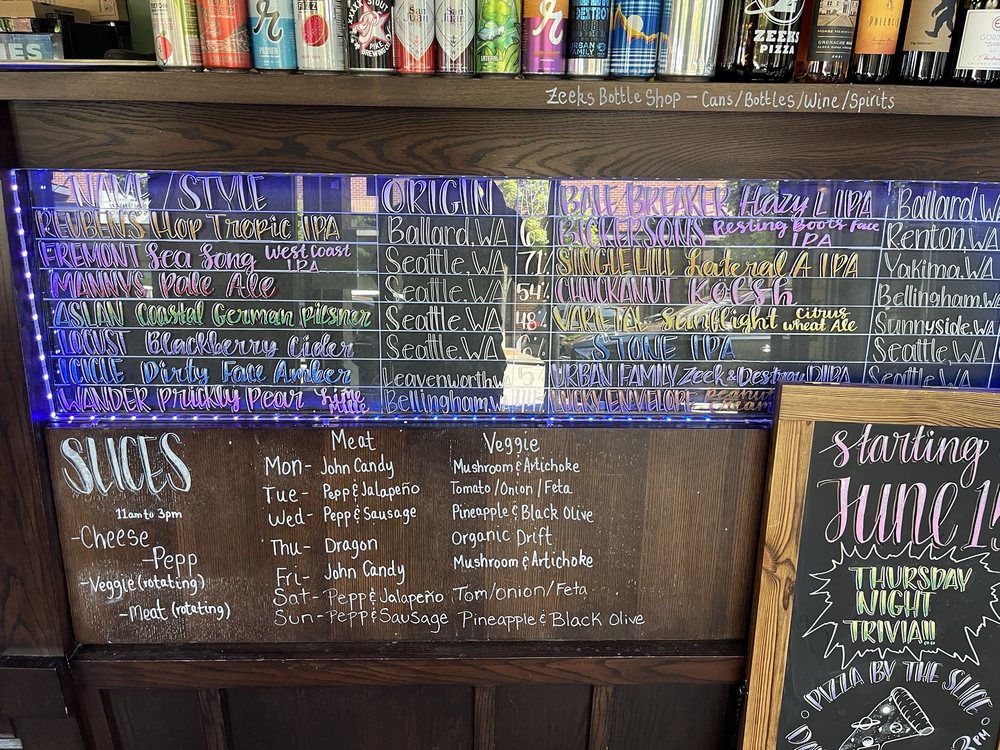 San Juan
San Juan
LATERAL A
DESTROY
URBAN FAMILY
ZEEKS PIZZA
PALENCIA
Zeeks Bottle Shop - Cans/Bottles/Wine/Spirits
NAME/STYLE ORIGIN
REUBENS Hop Tropic IPA Ballard, WA 6
FREMONT Sea Song West Coast IPA Seattle, WA 7.1%
MANNYS Pale Ale Seattle, WA 5.4%
ASLAN Coastal German Pilsner Seattle, WA 4.8%
LOCUST Blackberry Cider Seattle, WA 6%
ICICLE Dirty Face Amber Leavenworth W
WANDER Prickly Pear Lime Bellingham, WA
BALE BREAKER Hazy L IIPA Ballard, W
BICKERSONS Resting Boots Face IPA Renton, WA
SINGLE HILL Lateral A IPA Yakima, WA
CHUCKANUT Kolsh Bellingham, WA
VARIETAL Sunflight Citrus Wheat Ale Sunnyside, WA
STONE IPA Seattle, WA
URBAN FAMILY Zeek & Destroy DIPA Seattle, WA
LUCKY ENVELOPE Peanut
SLICES
11am to 3pm
-Cheese
-Pepp
-Veggie (rotating)
-Meat (rotating)
Meat Veggie
Mon- John Candy Mushroom & Artichoke
Tue- Pepp & Jalapeño Tomato/Onion/Feta
Wed- Pepp & Sausage Pineapple & Black Olive
Thu- Dragon Organic Drift
Fri- John Candy Mushroom & Artichoke
Sat- Pepp & Jalapeño Tom/onion/Feta
Sun- Pepp & Sausage Pineapple & Black Olive
Starting
JUNE 15
THURSDAY
NIGHT
TRIVIA!!!
PIZZA BY THE SLICE
PM